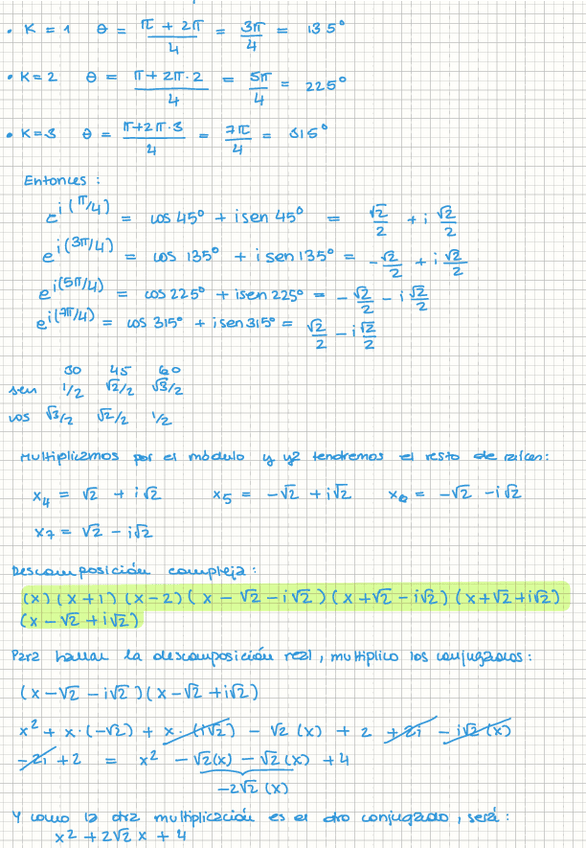 • K = 1 θ = (π + 2π)/4 = 3π/4 = 135°
• K = 2 θ = (π + 2π·2)/4 = 5π/4 = 225°
• K = 3 θ = (π + 2π·3)/4 = 7π/4 = 315°
Entonces :
e^i(π/4) = cos 45° + i sen 45° = √2/2 + i √2/2
e^i(3π/4) = cos 135° + i sen 135° = -√2/2 + i √2/2
e^i(5π/4) = cos 225° + i sen 225° = -√2/2 - i √2/2
e^i(7π/4) = cos 315° + i sen 315° = √2/2 - i √2/2
30 45 60
sen 1/2 √2/2 √3/2
cos √3/2 √2/2 1/2
Multiplicamos por el módulo y ya tendremos el resto de raíces:
x₄ = √2 + i√2 x₅ = -√2 + i√2 x₆ = -√2 - i√2
x₇ = √2 - i√2
Descomposición compleja :
(x) (x + 1) (x - 2) ( x - √2 - i√2 ) (x + √2 - i√2) (x + √2 + i√2)
(x - √2 + i√2)
Para hallar la descomposición real, multiplico los conjugados :
(x - √2 - i√2) (x - √2 + i√2)
x² + x·(-√2) + x·(i√2) - √2 (x) + 2 + 2i - i√2 (x)
-2i + 2 = x² - √2(x) - √2 (x) + 4
-2√2 (x)
Y como la otra multiplicación es el otro conjugado, será :
x² + 2√2 x + 4